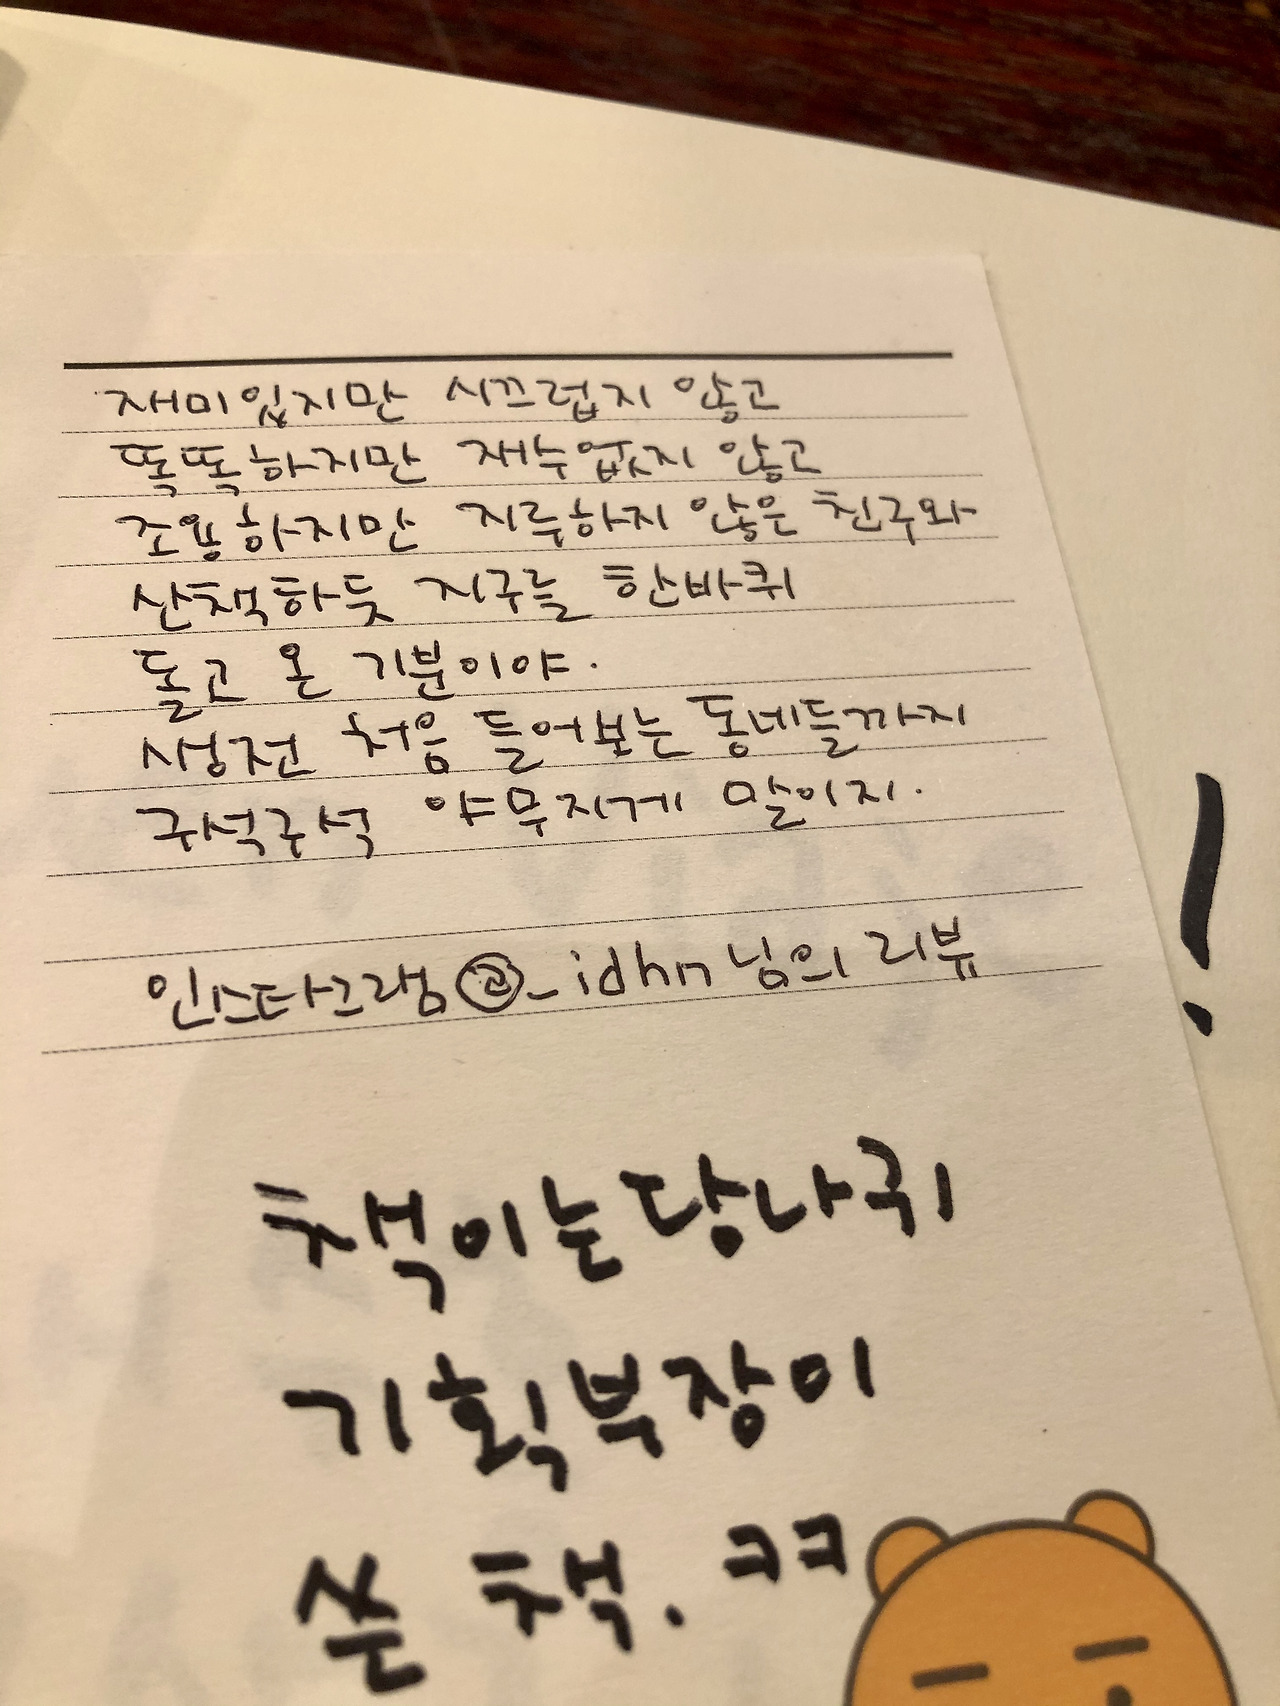 재미있지만 시끄럽지 않고
똑똑하지만 재수없지 않고
조용하지만 지루하지 않은 친구와
산책하듯 지구를 한바퀴
돌고 온 기분이야.
생전 처음 들어보는 동네들까지
구석구석 야무지게 말이지.
인스타그램 @_idhn 님의 리뷰
!
책이는당나귀
기획부장이
쓴 책. ㅋㅋ